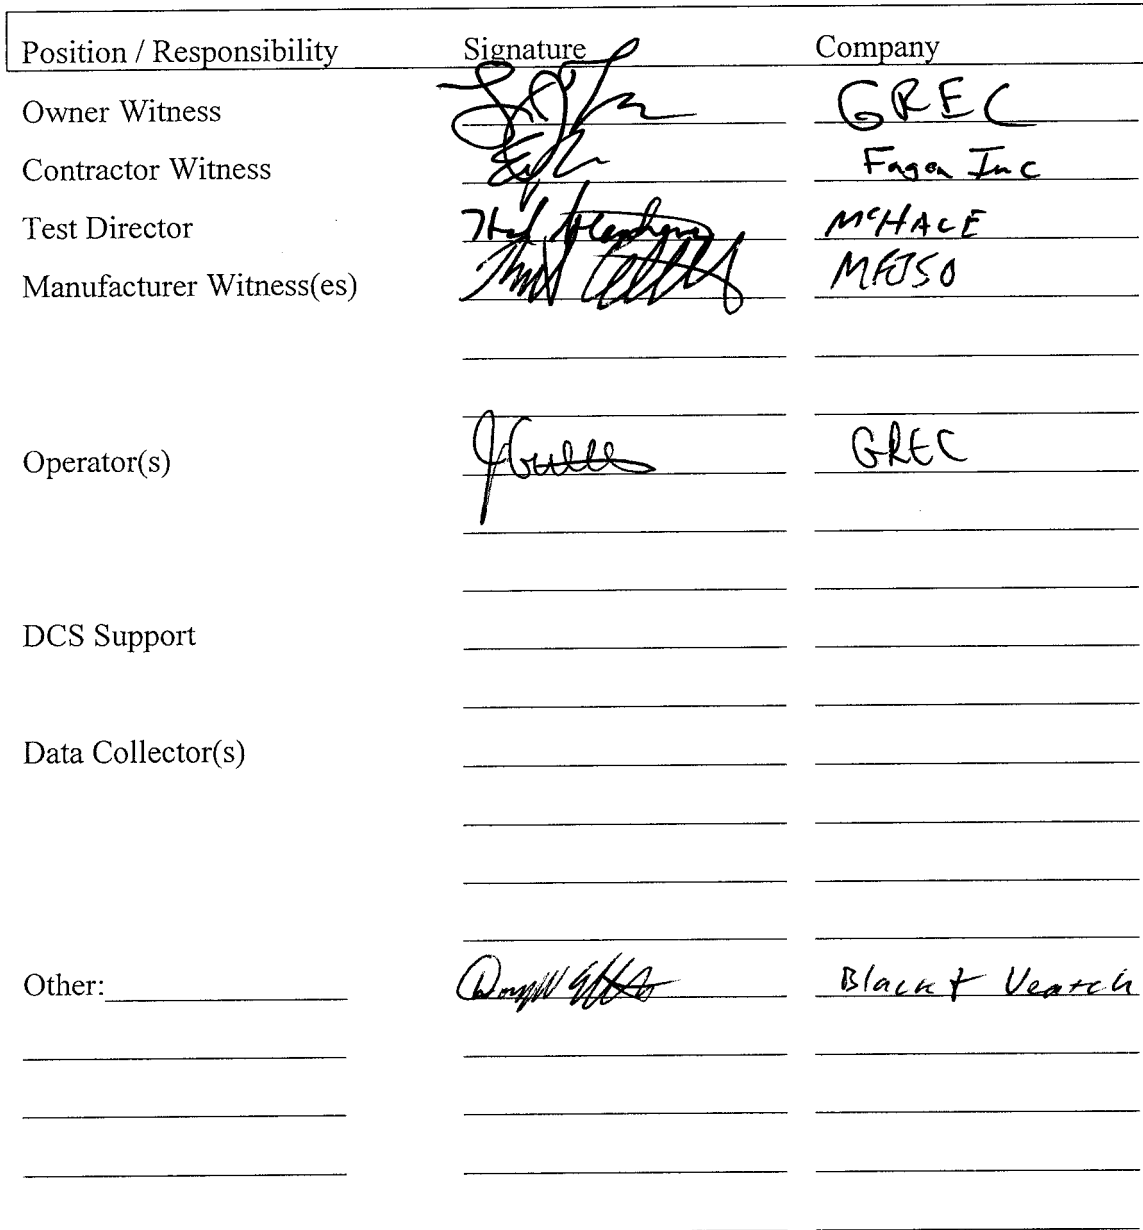 Position / Responsibility Signature Company
Owner Witness GREC
Contractor Witness Fagen Inc
Test Director McHALE
Manufacturer Witness(es) METSO
Operator(s) GREC
DCS Support
Data Collector(s)
Other: Black & Veatch